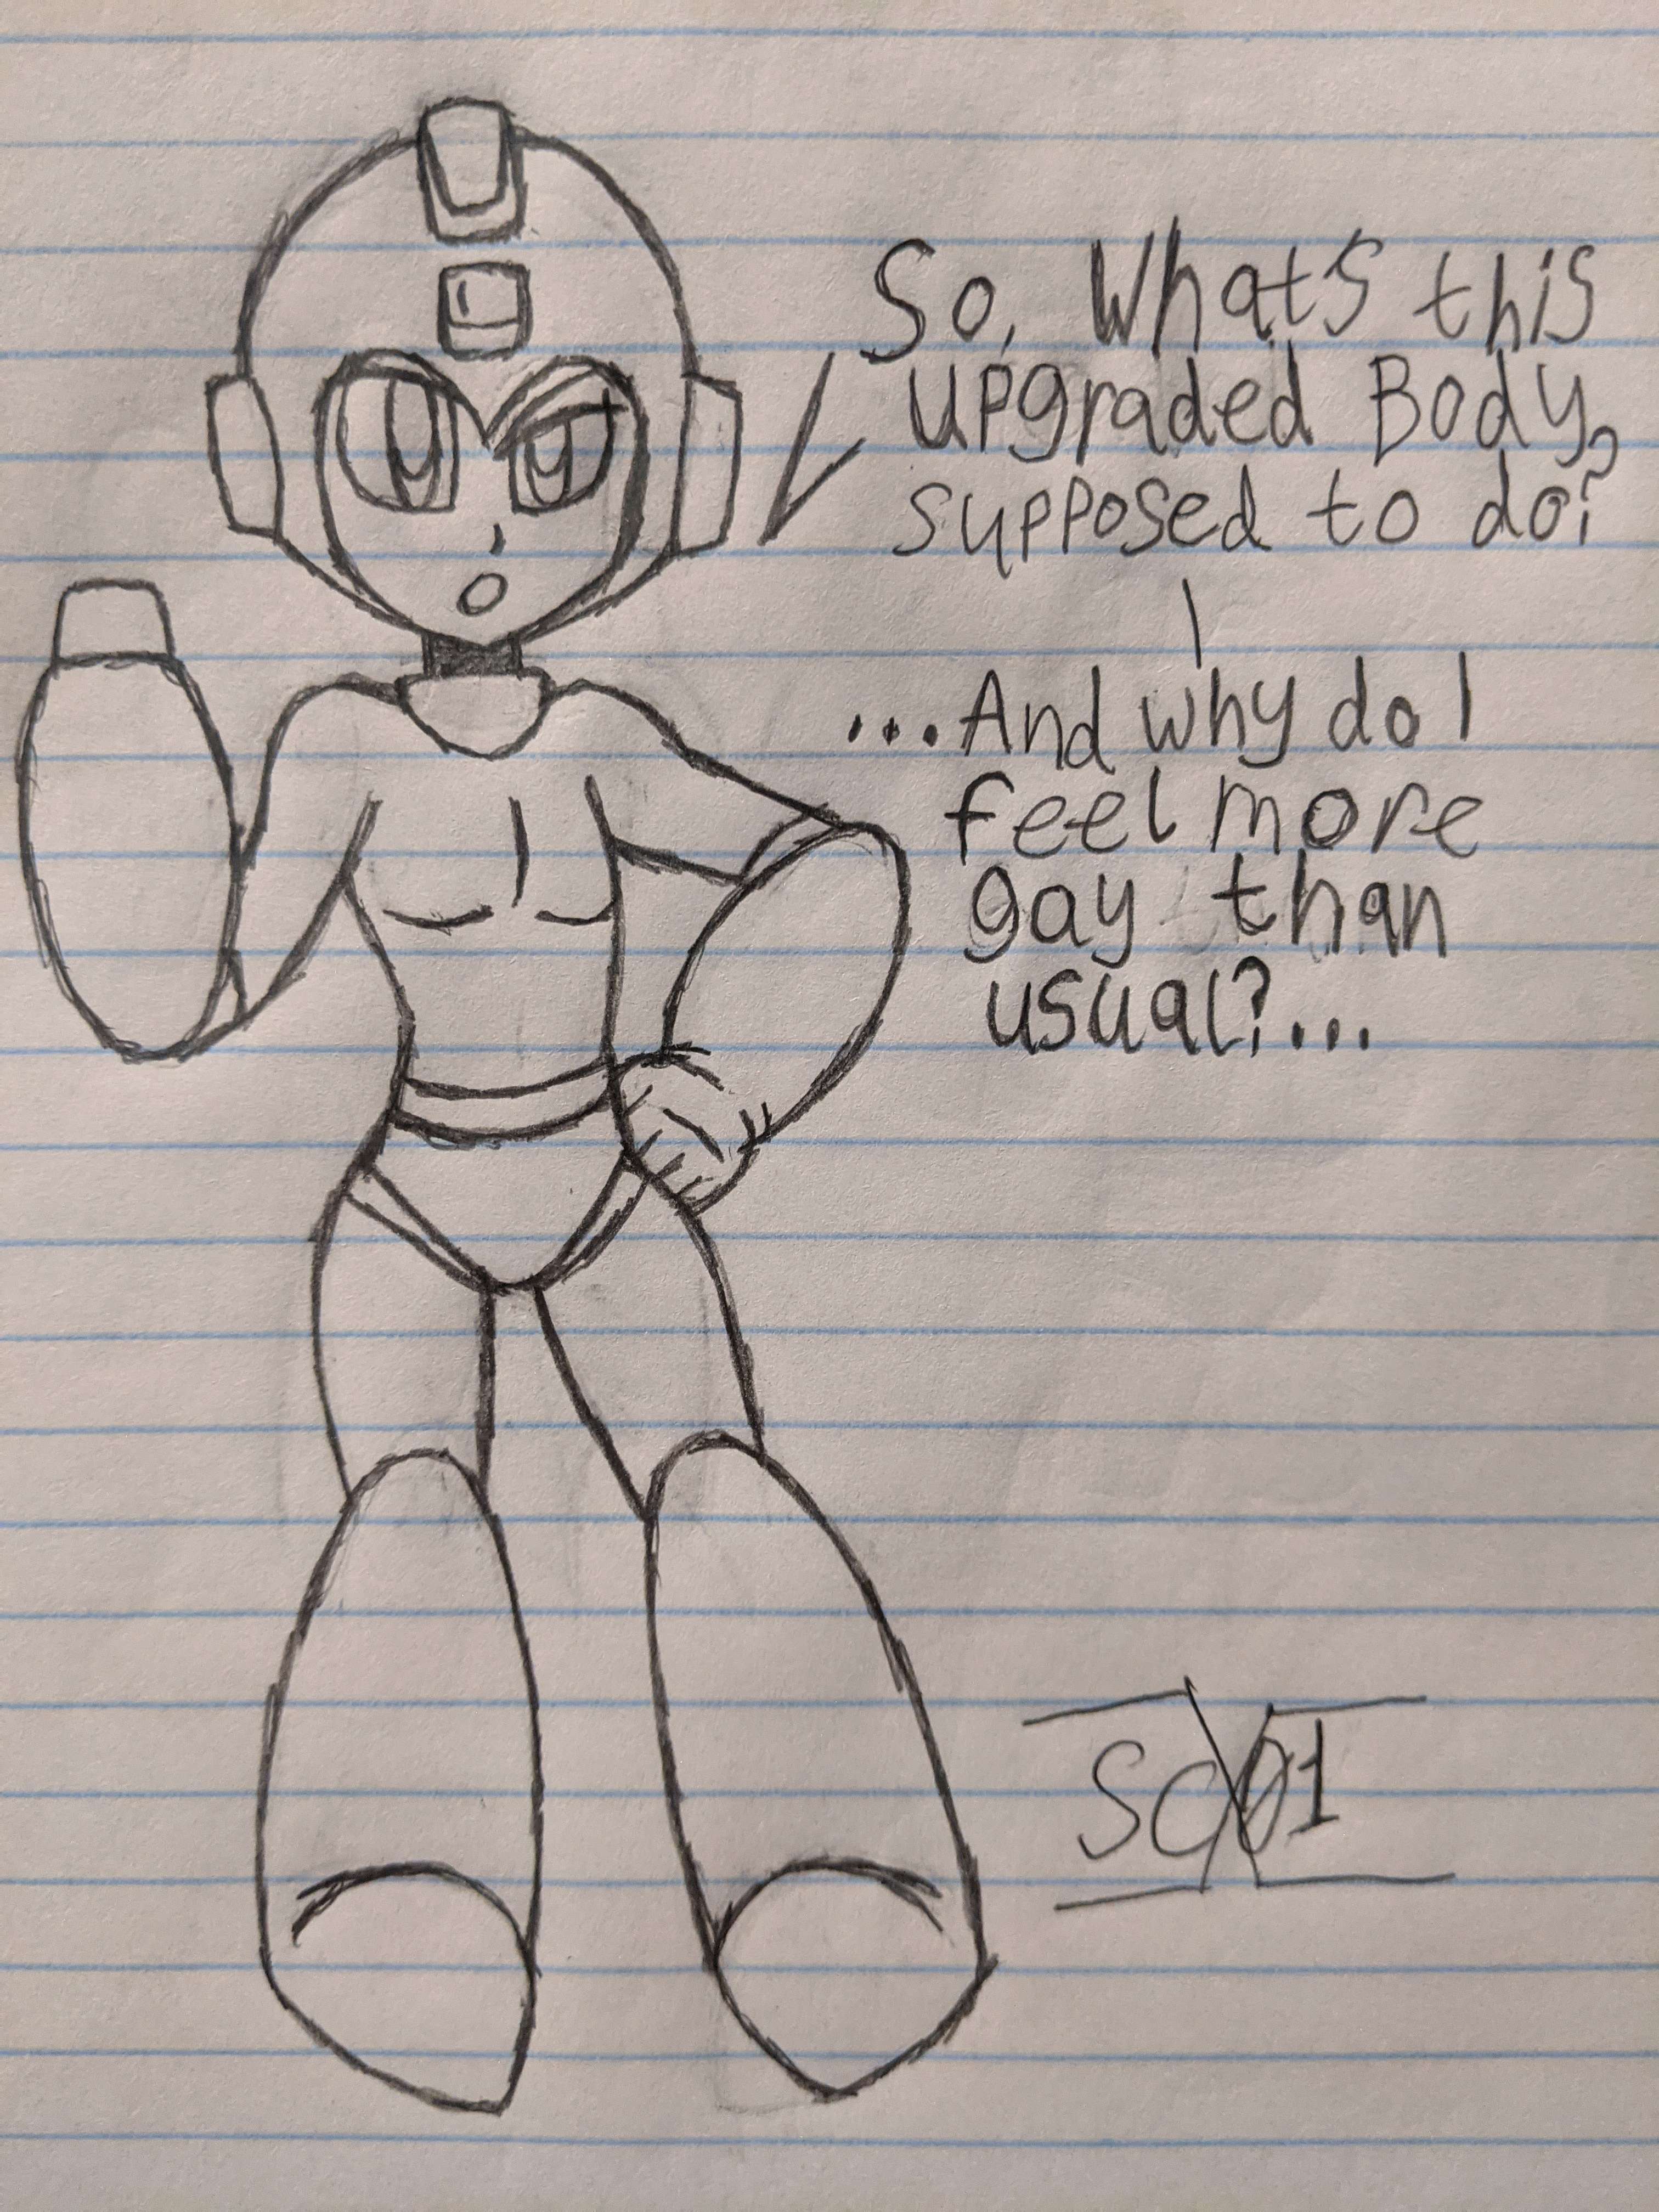 So, What's this
upgraded Body,
supposed to do?
...And why do I
feel more
gay than
usual?...
SC01